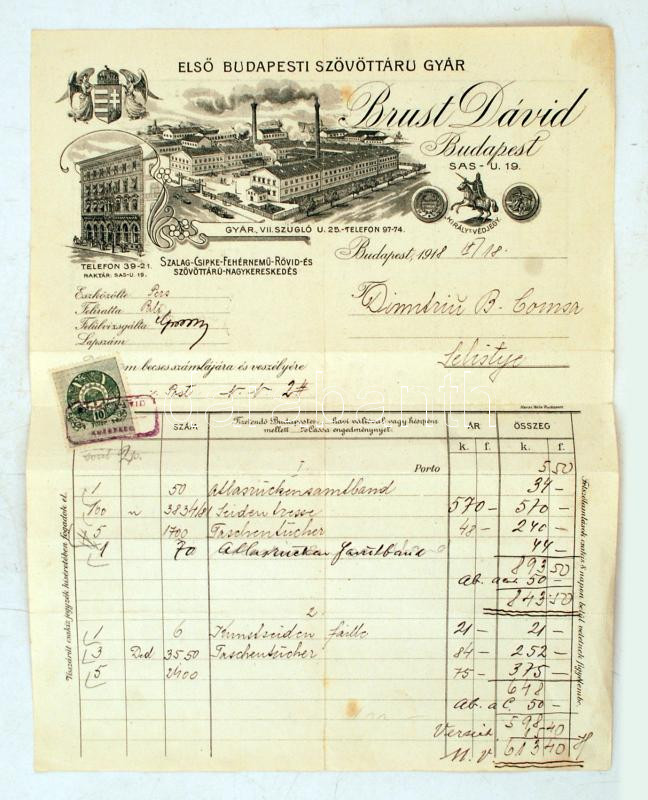 ELSŐ BUDAPESTI SZÖVÖTTÁRU GYÁR
Brust Dávid
Budapest
SAS-U. 19.
KIRÁLY VÉDJEGY.
GYÁR, VII. SZUGLÓ U. 25.-TELEFON 97-74.
TELEFON 39-21.
RAKTÁR: SAS-U. 19.
SZALAG-CSIPKE-FEHÉRNEMŰ-RÖVID-ÉS
SZÖVÖTTÁRÚ-NAGYKERESKEDÉS
Budapest, 1918
Eszközölte Pers
Felíratta
Felülvizsgálta
Lapszám
Dimitriu B. Comsa
Selistye
becses számlájára és veszélyére
2#
SZÁM
Fizetendő Budapesten, havi váltóval vagy készpénz
mellett % Cassa engedménnyel.
ÁR
ÖSSZEG
k. f. k. f.
1. Porto 5 50
1 50 Atlasrückensamtband 34 -
100 3834/81 Seidentresse 570 - 570 -
5 1700 Taschentücher 48 - 240 -
1 70 Atlasrücken Samtband 44 -
893 50
50 -
843.50
2.
1 6 Kunstseiden faille 21 - 21 -
3 Dzd 3550 Taschentücher 84 - 252 -
5 2400 75 - 375 -
648
50 -
598
15 40
613 40
Felszólamlások csakis 8 napon belül vétetnek figyelembe.